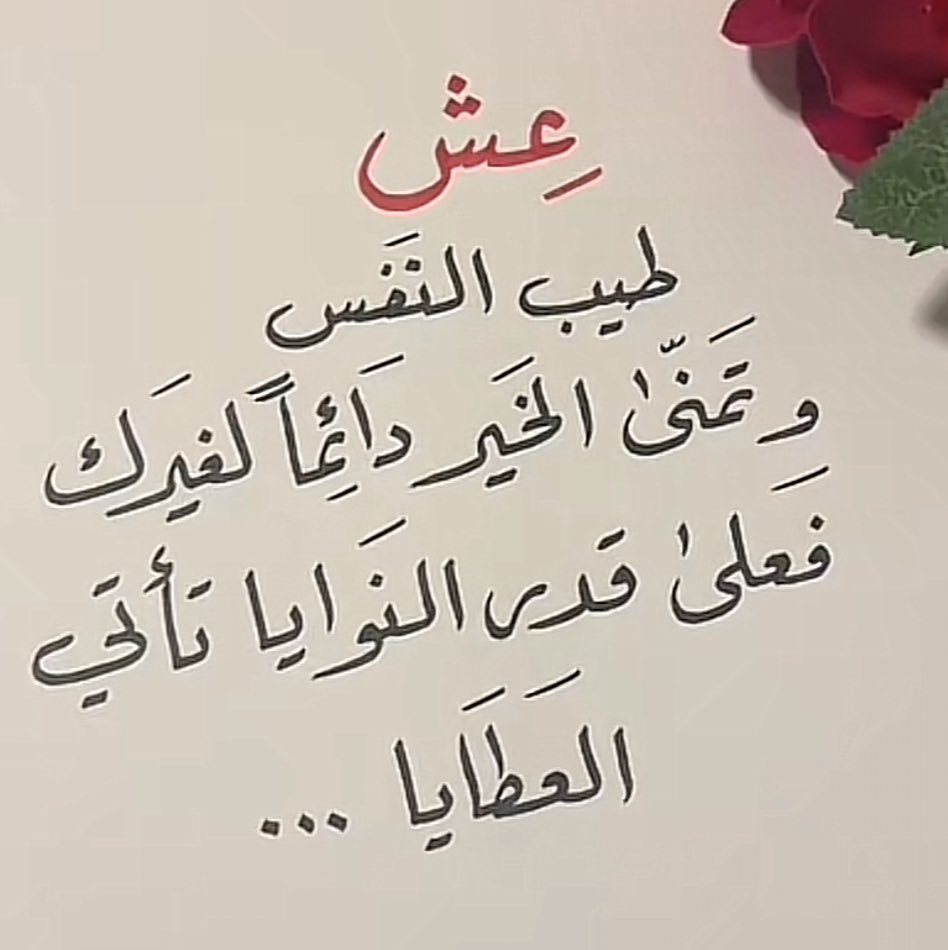 عِش
طيب النَفَس
و تَمَنّىٰ الخَير دَائِماً لغيرَك
فَعلىٰ قدر النَوايا تأتي
العَطَايا ...